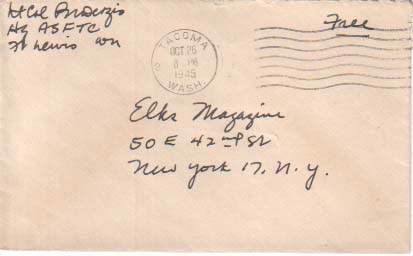 Lt Col
Hq ASFTC
Ft Lewis Wn
Free
TACOMA
OCT 26
PM
1945
WASH.
Elks Magazine
50 E 42nd St
New York 17. N.Y.